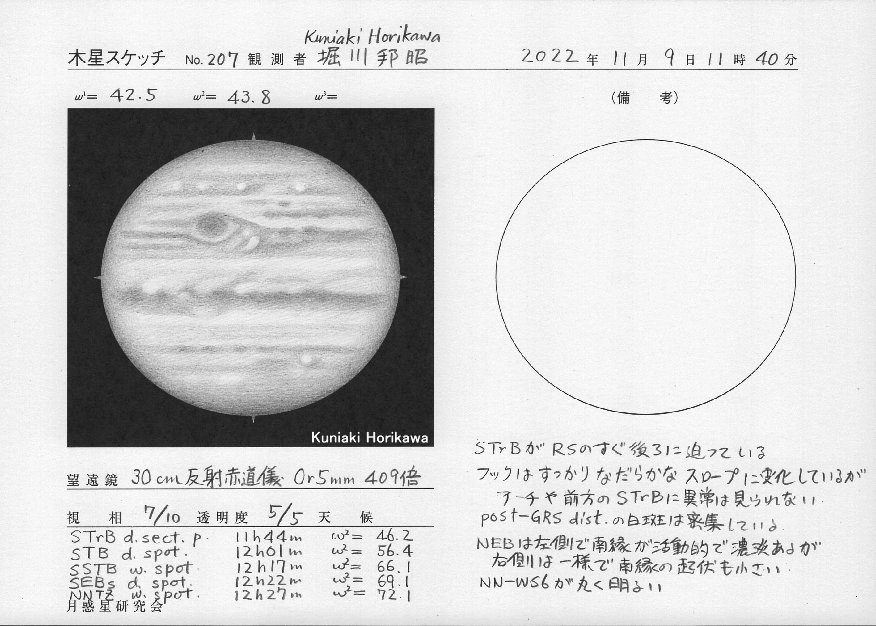 Kuniaki Horikawa
木星スケッチ No.207 観測者 堀川邦昭 2022年11月9日11時40分
ω¹= 42.5 ω²= 43.8 ω³=
(備 考)
Kuniaki Horikawa
望遠鏡 30cm反射赤道儀 Or5mm 409倍
視 相 7/10 透明度 5/5 天 候
STrB d.sect.p. 11h44m ω²= 46.2
STB d.spot. 12h01m ω²= 56.4
SSTB w.spot 12h17m ω²= 66.1
SEBs d.spot 12h22m ω²= 69.1
NNTZ w.spot 12h27m ω²= 72.1
月惑星研究会
STrBがRSのすぐ後ろに迫っている
フックはすっかりなだらかなスロープに変化しているが
アーチや前方のSTrBに異常は見られない.
post-GRS dist.の白斑は密集している.
NEBは左側で南縁が活動的で濃淡あるが
右側は一様で南縁の起伏も小さい.
NN-WS6が丸く明るい